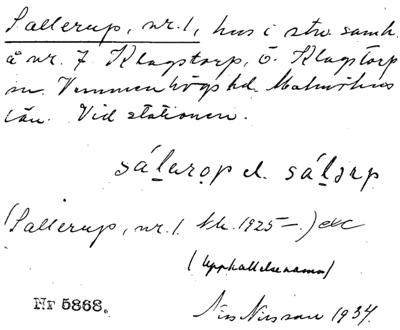 Sallerup, nr. 1, hus i stw. samh.
å nr. 7 Klagstorp, Ö. Klagstorp
sn. Vemmenhögs hd. Malmöhus
län. Vid stationen.
sálarop el. sálarup
(Sallerup, nr. 1. 1925 –.)
(Uppkallelsenamn)
Nr 5868. Nils Nilsson 1934.